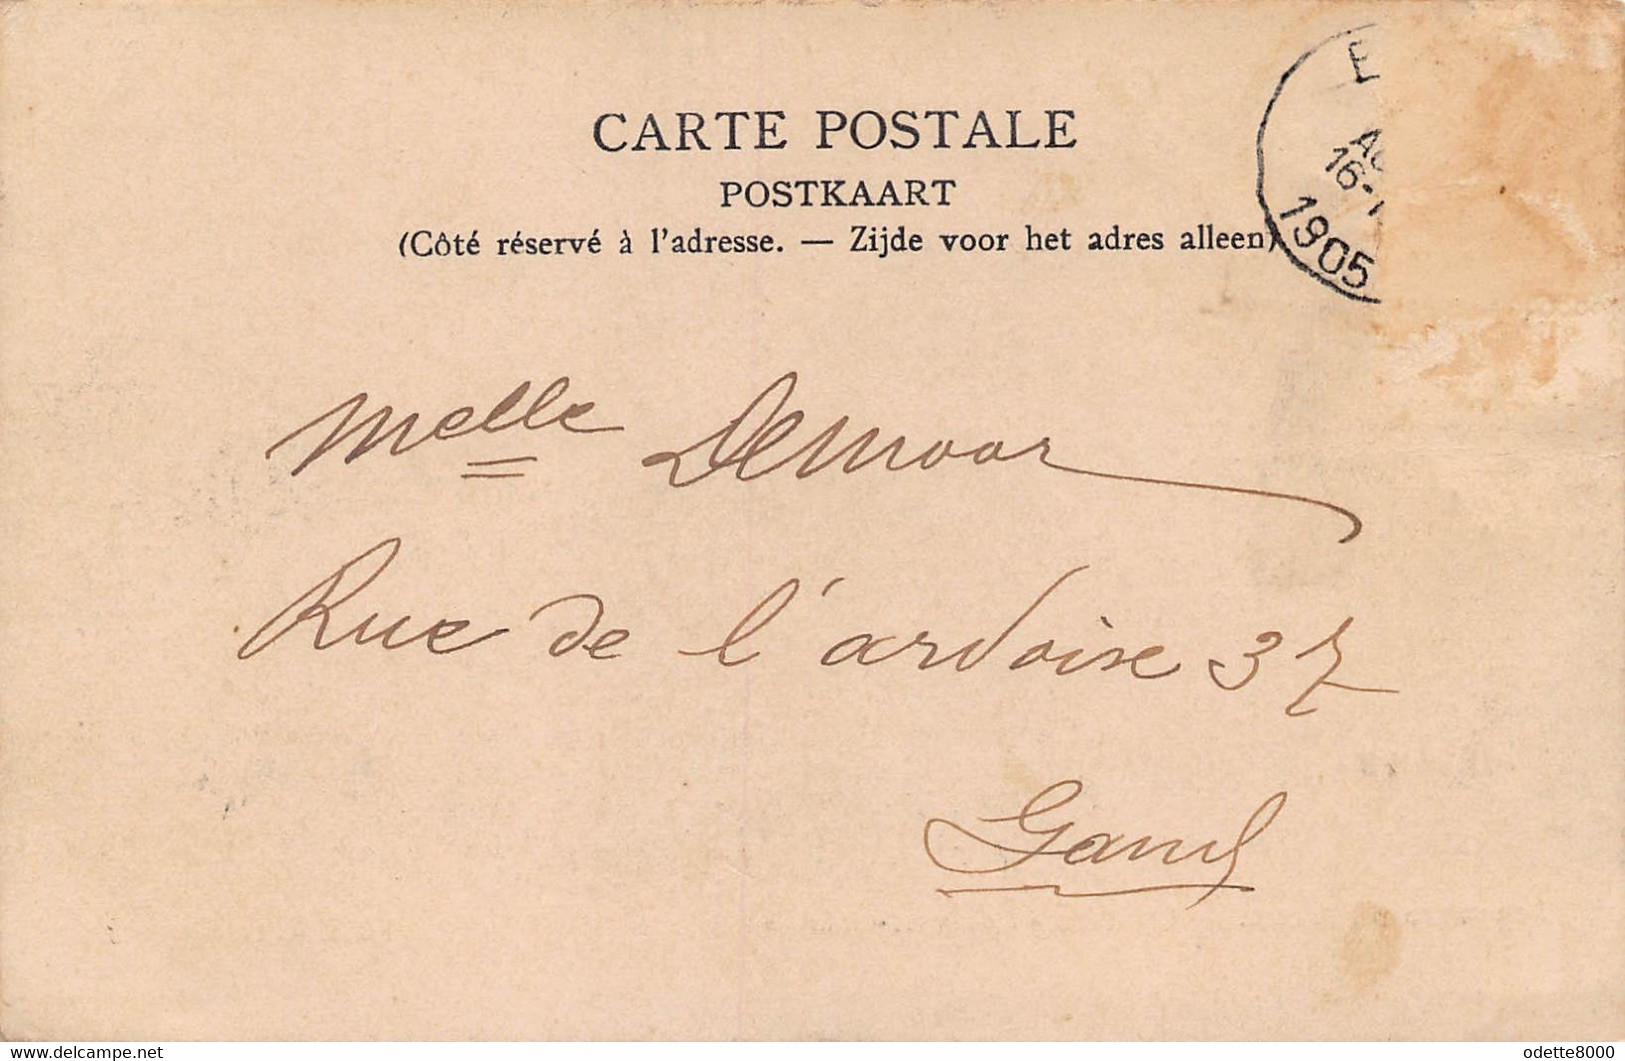 CARTE POSTALE
POSTKAART
(Côté réservé à l'adresse. — Zijde voor het adres alleen)
16-
1905
Melle Demoor
Rue de l'ardoise 37
Gand
www.delcampe.net
odette8000